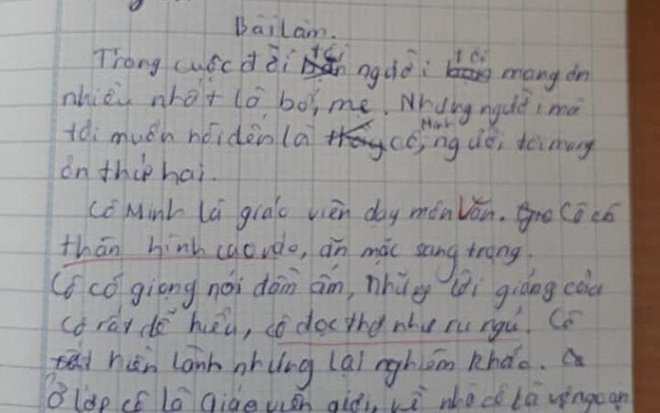 Bài Làm.
Trong cuộc đời tôi người tôi mang ơn
nhiều nhất là bố, mẹ. Nhưng người mà
tôi muốn nói đến là cô Minh, người tôi mang
ơn thứ hai.
Cô Minh là giáo viên dạy môn Văn. Cô có
thân hình cao , ăn mặc sang trọng.
Cô có giọng nói đầm ấm, những lời giảng của
cô rất dễ hiểu, cô đọc thơ như ru ngủ. Cô
hiền lành nhưng lại nghiêm khắc.
Ở lớp cô là giáo viên giỏi, về nhà cô là vợ ngoan